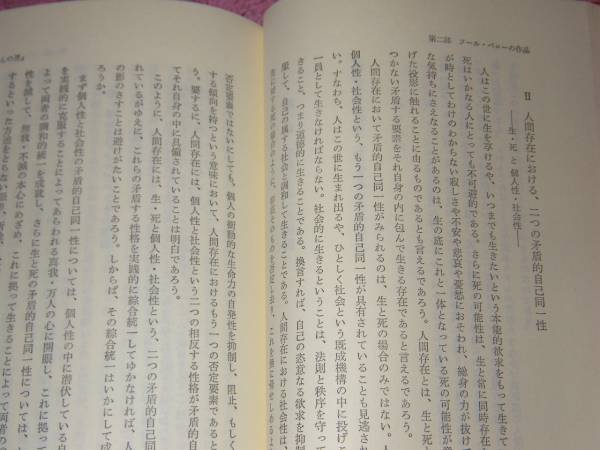 第二部　ソール・ベローの作品
II　人間存在における、二つの矛盾的自己同一性
――生・死 と 個人性・社会性――
人はこの世に生を享けるや、いつまでも生きたいという本能的欲求をもって生きて
死はいかなる人にとっても不可避的である。さらに死の可能性は、生と常に同時存在
が時としてわけのわからない寂しさや不安や悲哀や憂愁におそわれ、総身の力が抜けて
な気持ちにさえなることがあるのは、生の底にこれと一体となっている死の可能性が
げた投影に触れることに由るものであるとも言えるであろう。人間存在とは、生と死と
つかない矛盾する要素をそれ自身の内に包んで生きる存在であると言えるであろう。
人間存在において矛盾的自己同一性がみられるのは、生と死の場合のみではない。
個人性・社会性という、もう一つの矛盾的自己同一性が具有されていることも見逃され
い。すなわち、人はこの世に生まれ出るや、ひとしく社会という既成機構の中に投げこ
一員として生きなければならない。社会的に生きるということは、法則と秩序を守って
きること、つまり道徳的に生きることである。換言すれば、自己の恣意なる欲求を抑制
服して、自己の属する社会と調和して生きることである。人間存在における社会性は、
否定要素ではないにしても、個人の衝動的な生命力の自発性を抑制し、阻止、もしく
する傾向を持つという意味において、人間存在におけるもう一つの否定要素であると
う。要するに、人間存在には、個人性と社会性という二つの相反する性格が矛盾的自
てそれ自身の中に具備されていることは明白であろう。
このように、人間存在には、生・死と個人性・社会性という、二つの矛盾的自己同
れているがゆえに、これらの矛盾する性格を実践的に綜合統一してゆかなければ、人
の影のさすことは避けがたいことであろう。しからば、その綜合統一はいかにして成
うか。
まず個人性と社会性の矛盾的自己同一性については、個人性の中に潜伏している自
を実践的に克服することによってあらわれる真我・万人の心に開眼し、これに拠って
て両者の調和的統一を成就し、さらに生と死の矛盾的自己同一性については、し
性を滅して、不生・不滅の本心にめざめ、これに拠って生きることによって両者の
するといった方法をとらない限り